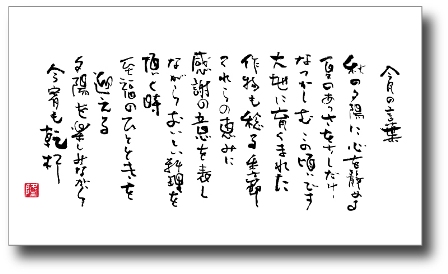 今月の言葉
秋の夕陽に心を静める
夏のあつさを少しだけ
なつかしむこの頃です
大地に育くまれた
作物も稔る季節
それらの恵みに
感謝の意を表し
ながらおいしい料理を
頂く時
至福のひとときを
迎える
夕陽を楽しみながら
今宵も乾杯